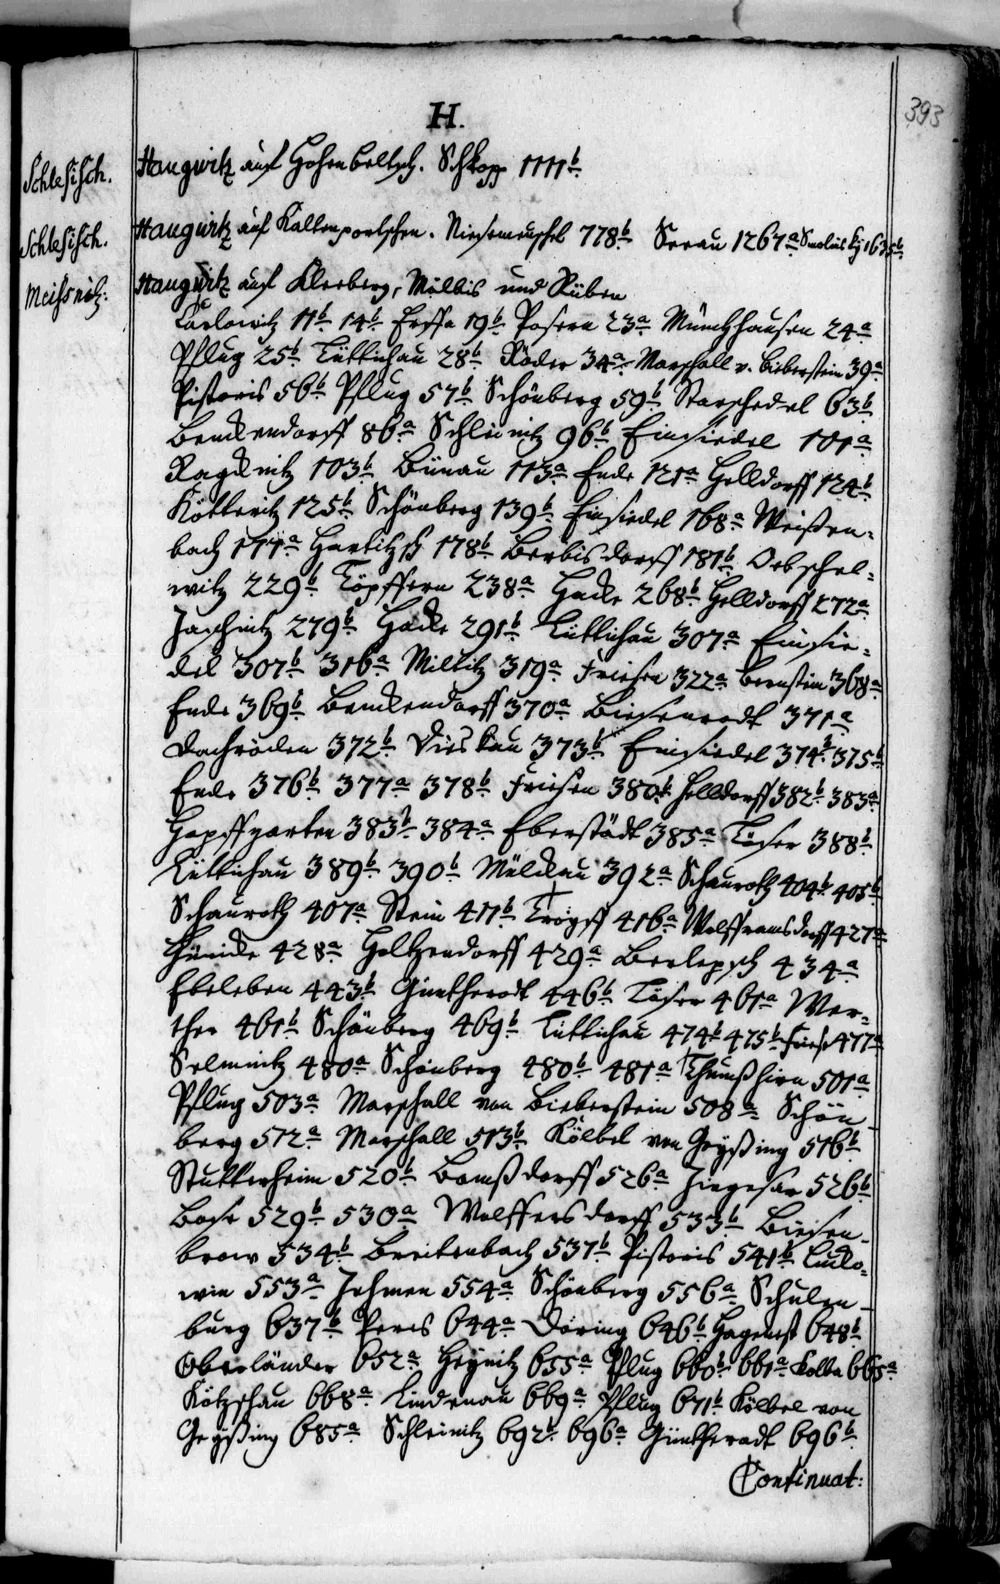 393
H.
Schlesisch. Haugwitz auf Hohenbeltsch. Schkopp 1111b
Schlesisch. Haugwitz auf Kaltenportschen. Niesemeuschel 778b Serau 1267a 1635b
Meissnisch: Haugwitz auf Kleeberg, Mölbis und Rüben
Carlowitz 11b 14b Ersfa 19b Posern 23a Münchhausen 24a
Pflug 25b Lüttichau 28b Röder 34a Marschall v. Bieberstein 39a
Pistoris 56b Pflug 57b Schönberg 59b Starschedel 63b
Benckendorff 86a Schleinitz 96b Einsiedel 101a
Ragcknitz 103b Bünau 113a Ende 121a Helldorff 124b
Kötteritz 125b Schönberg 139b Einsiedel 168a Weißen-
bach 177a Hartitzsch 178b Berbisdorff 181b Oebschel-
witz 229b Töpffern 238a Hacke 268b Helldorff 272a
Zaschnitz 279b Hacke 291b Lüttichau 307a Einsie-
del 307b 316a Miltitz 319a Friesen 322a Bernstein 368a
Ende 369b Benckendorff 370a Biesenrodt 371a
Dachröden 372b Dieskau 373b Einsiedel 374b 375b
Ende 376b 377a 378b Friesen 380b Helldorff 382b 383a
Hopffgarten 383b 384a Eberstädt 385a Löser 388b
Lüttichau 389b 390b Mülckau 392a Schauroth 404b 405b
Schauroth 407a Stein 411b Tropff 416a Wolfframsdorff 427a
Hünicke 428a Holtzendorff 429a Berlepsch 434a
Ebeleben 443b Güntherodt 446b Löser 461a Wer-
ther 461b Schönberg 469b Lüttichau 474b 475b Friese 477a
Selmnitz 480a Schönberg 480b 481a Thumshirn 501a
Pflug 503a Marschall von Bieberstein 508a Schön-
berg 512a Marschall 513b Kölbel von Geyßing 516b
Stutterheim 520b Bomßdorff 526a Ziegesar 526b
Bose 529b 530a Wolffersdorff 533b Biesen-
brow 534b Breitenbach 537b Pistoris 541b Lucko-
win 553a Jahmen 554a Schönberg 556a Schulen-
burg 637b Peres 644a Döring 646b Hagenest 648b
Oberländer 652a Heynitz 655a Pflug 660b 661a Kolba 665a
Kötzschau 668a Lindenau 669a Pflug 671b Kölbel von
Geyßing 685a Schleinitz 692b 696a Güntherodt 696b
Continuat: